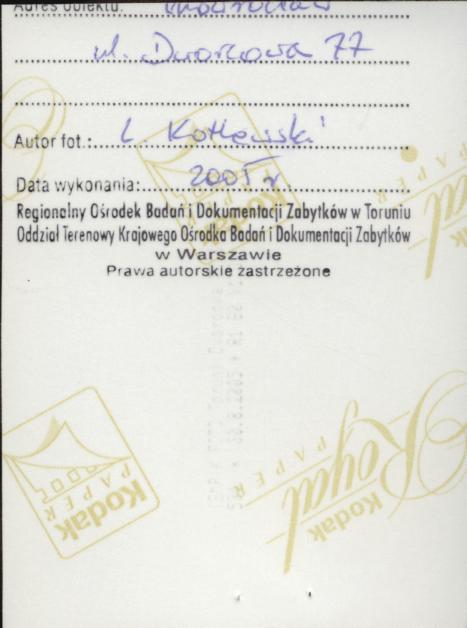 Adres obiektu: Inowrocław
ul. Dworcowa 77
Autor fot.: L. Kotlewski
Data wykonania: 2005 r
Regionalny Ośrodek Badań i Dokumentacji Zabytków w Toruniu
Oddział Terenowy Krajowego Ośrodka Badań i Dokumentacji Zabytków
w Warszawie
Prawa autorskie zastrzeżone
Kodak
PAPER
Kodak
Royal
PAPER